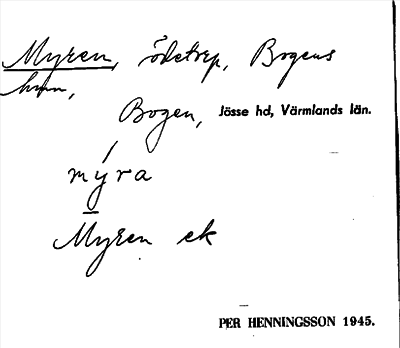 Myren, ödetrp, Bogens
hmn,
Bogen, Jösse hd, Värmlands län.
myra
Myren ek
PER HENNINGSSON 1945.